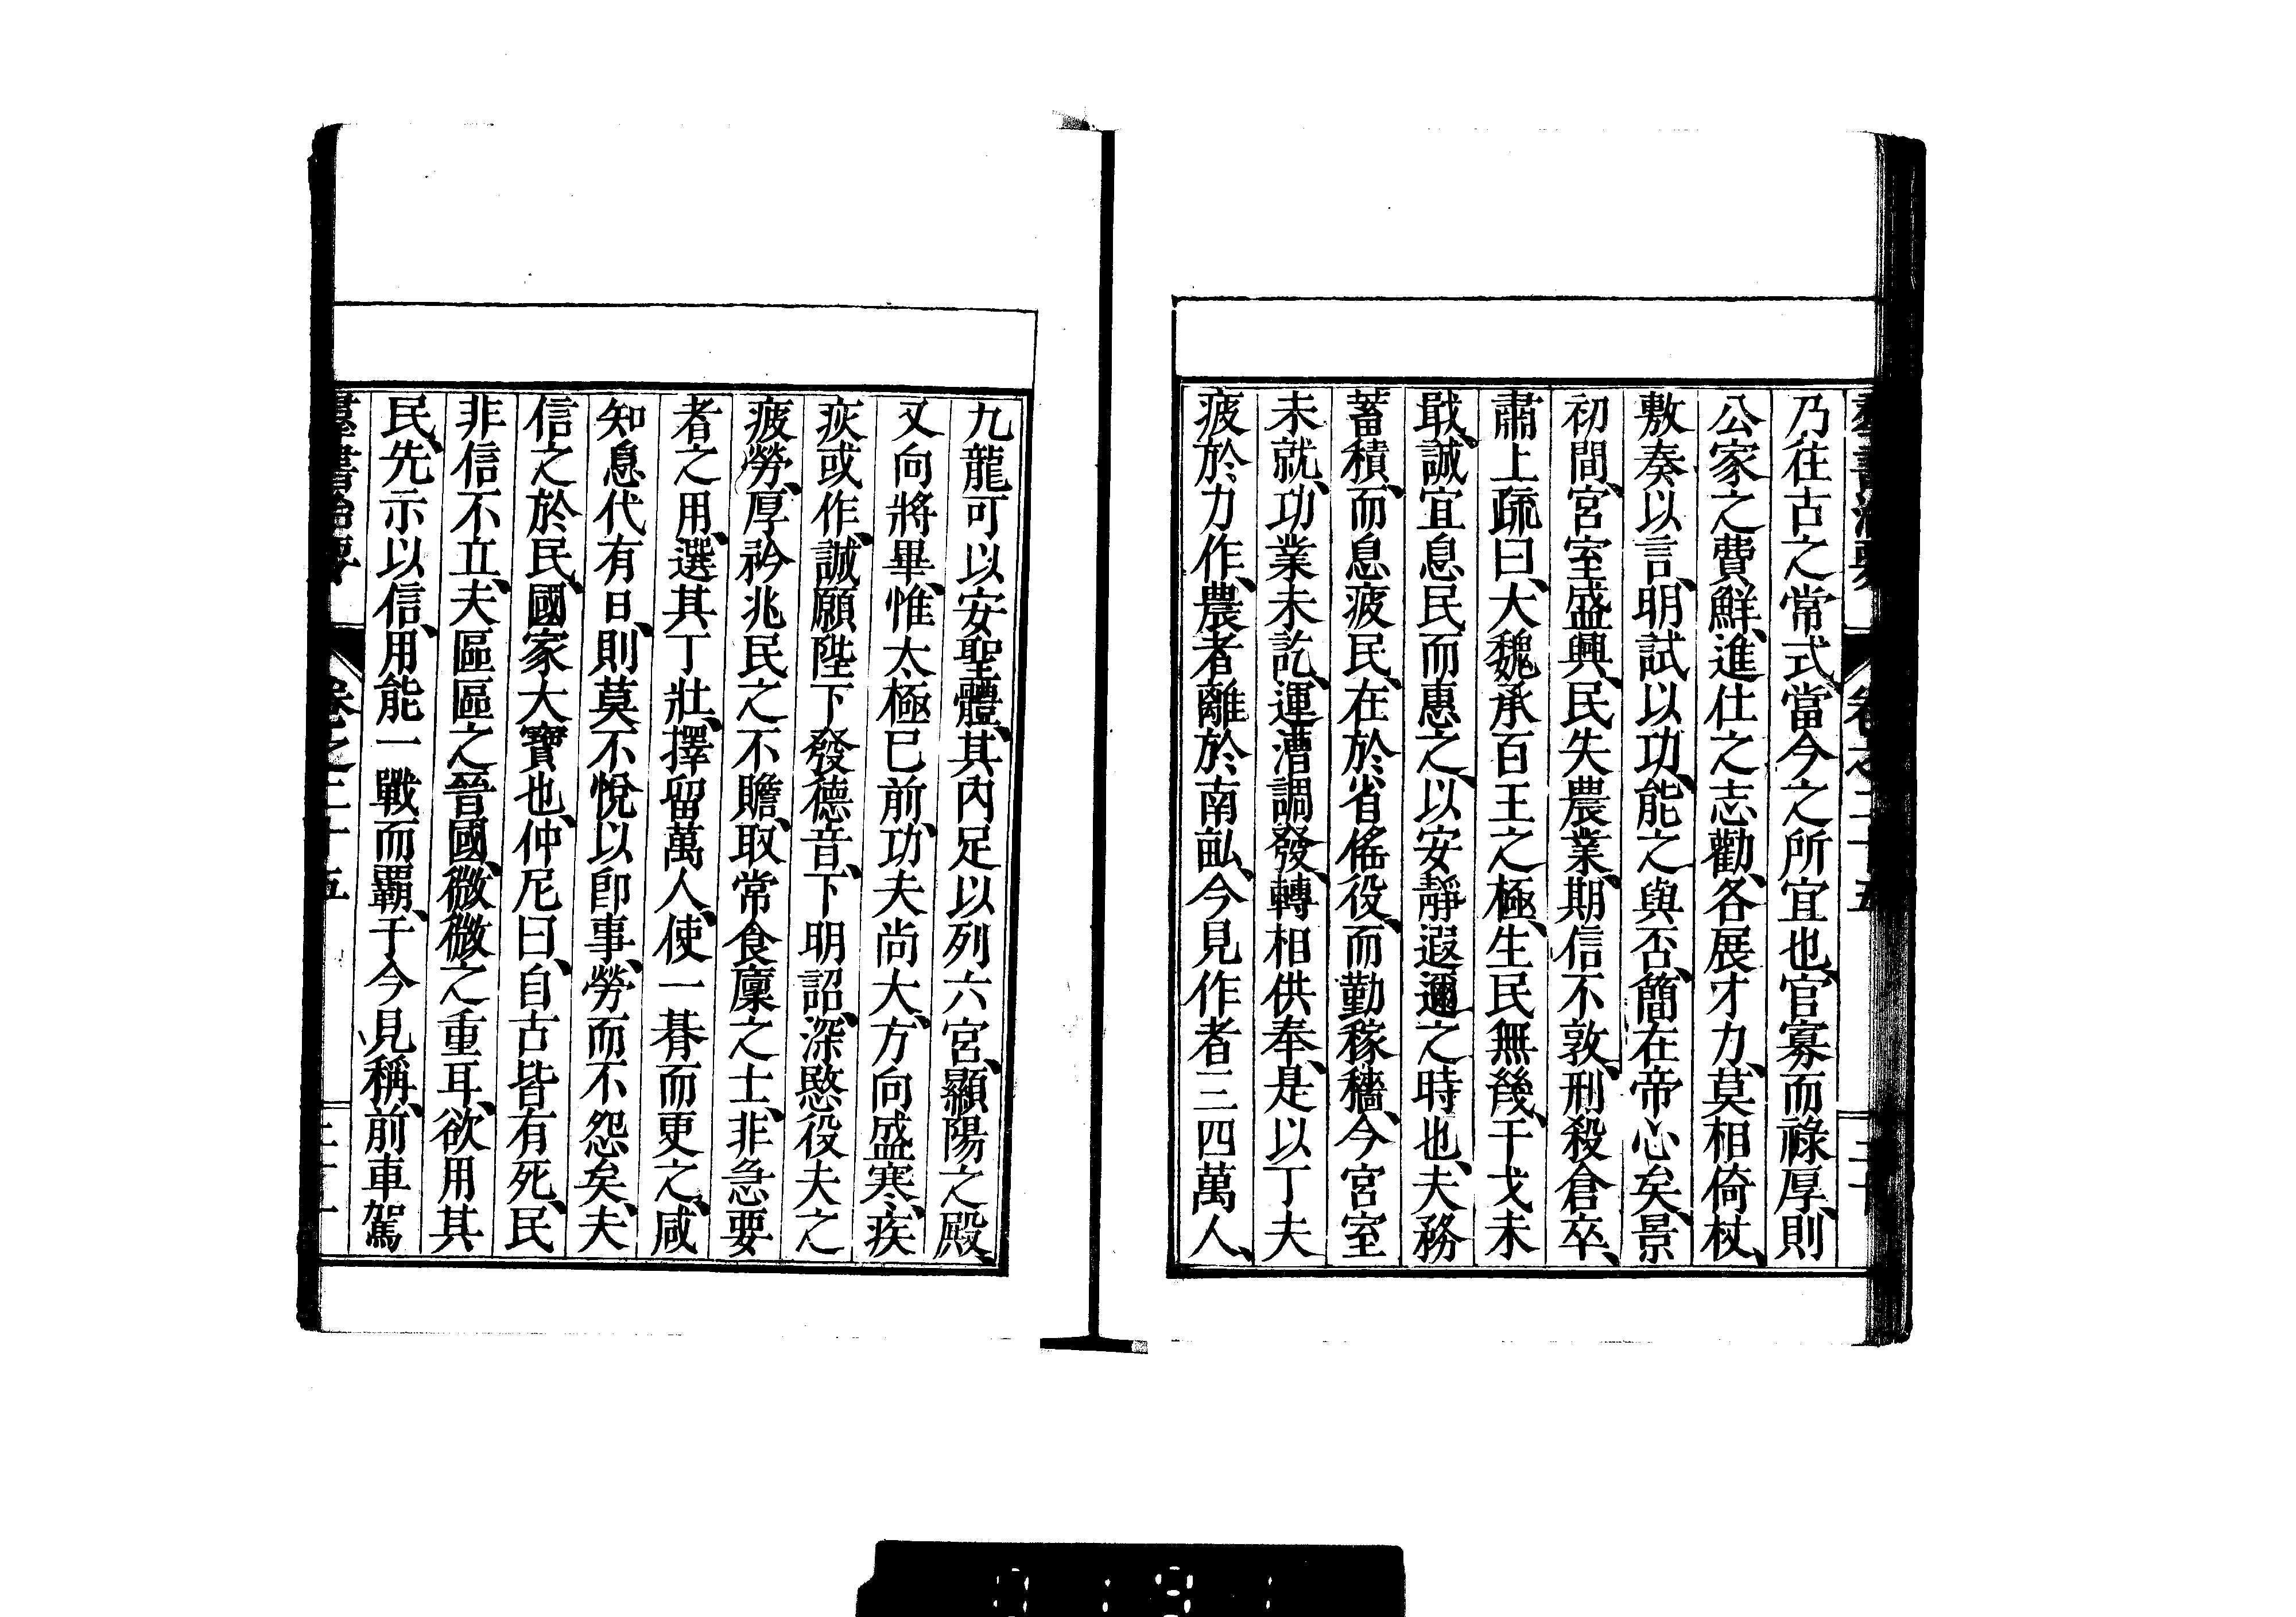 乃往古之常式、當今之所宜也、官寡而祿厚、則
公家之費鮮、進仕之志勸、各展才力、莫相倚杖、
敷奏以言、明試以功、能之與否、簡在帝心矣、景
初間、宮室盛興、民失農業、期信不敦、刑殺倉卒、
肅上疏曰、大魏承百王之極、生民無幾、干戈未
戢、誠宜息民而惠之、以安靜遐邇之時也、夫務
蓄積、而息疲民、在於省徭役、而勤稼穡、今宮室
未就、功業未訖、運漕調發、轉相供奉、是以丁夫
疲於力作、農者離於南畝、今見作者三四萬人、
九龍可以安聖體、其內足以列六宮、顯陽之殿、
又向將畢、惟太極已前、功夫尚大、方向盛寒、疾
疢或作、誠願陛下發德音、下明詔、深愍役夫之
疲勞、厚矜兆民之不贍、取常食廩之士、非急要
者之用、選其丁壯、擇留萬人、使一朞而更之、咸
知息代有日、則莫不悅以卽事、勞而不怨矣、夫
信之於民、國家大寶也、仲尼曰、自古皆有死、民
非信不立、夫區區之晉國、微微之重耳、欲用其
民、先示以信、用能一戰而霸、于今見稱、前車駕
群書治要 卷之二十五